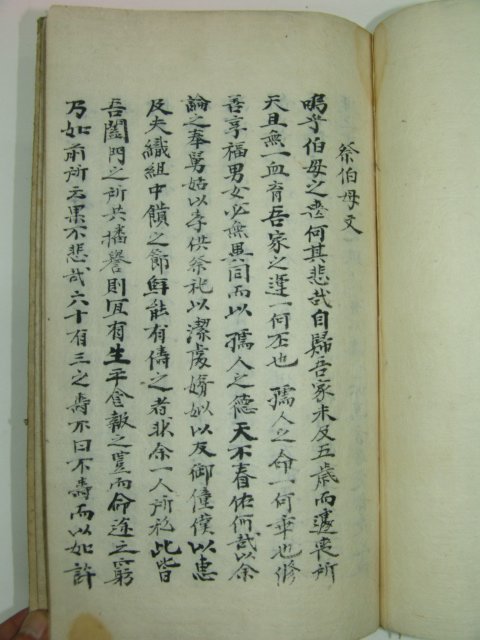 祭伯母文
嗚乎伯母之喪何其悲哉自歸吾家未及五歲而遽喪所
天且無一血育吾家之運一何否也孺人之命一何窮也修
善享福男女必無異同而以孺人之德天不眷佑何哉以余
論之奉舅姑以孝供祭祀以潔處娣姒以友御僮僕以惠
及夫織組中饋之節鮮能有儔之者非余一人所私此皆
吾闔門之所共播譽則宜有生平食報之豈而命途之窮
乃如前所云果不悲哉六十有三之壽不曰不壽而以如許